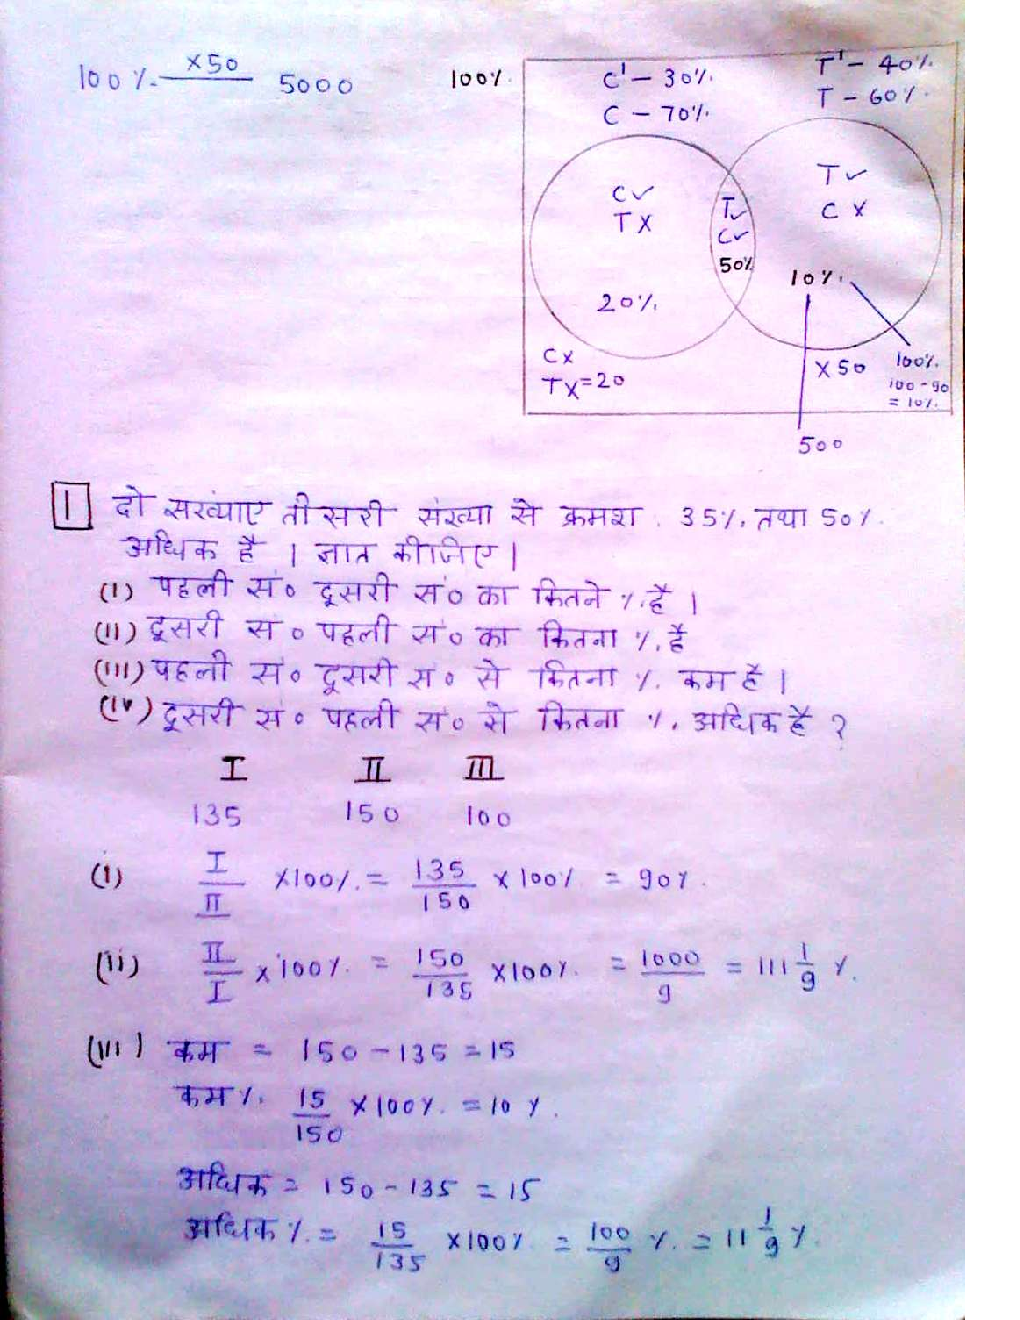 100% ×50 5000 100%
C' - 30%
C - 70%
T' - 40%
T - 60%
C✓
T X
T✓
C✓
50%
T✓
C X
20%
10%
CX
TX=20
X50
100%
100-90
= 10%
500
1 दो सख्याए तीसरी संख्या से क्रमश. 35% तथा 50%
अधिक है । ज्ञात कीजिए।
(I) पहली सं० दूसरी सं० का कितने % है ।
(II) दूसरी स० पहली सं० का कितना % है
(III) पहली सं० दूसरी स० से कितना % कम है ।
(Iv) दूसरी सं० पहली सं० से कितना % अधिक है ?
I II III
135 150 100
(I) I/II ×100% = 135/150 × 100% = 90%
(ii) II/I ×100% = 150/135 ×100% = 1000/9 = 111 1/9 %
(III) कम = 150-135 = 15
कम% 15/150 × 100% = 10%
अधिक = 150-135 = 15
अधिक% = 15/135 ×100% = 100/9 % = 11 1/9 %